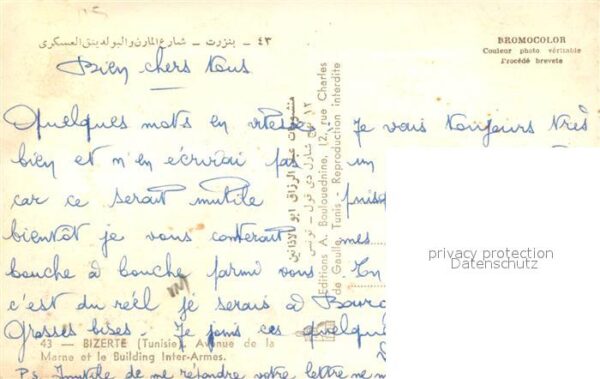 ٤٣ — بنزرت — شارع المارن والبولدينق العسكري
BROMOCOLOR
Couleur photo véritable
Procédé breveté
Bien chers tous
Quelques mots en vitesse. Je vais toujours très
bien et n'en écrirai pas un
car ce serait inutile puisq
bientôt je vous conterait
bouche à bouche parmi vous. Ton
c'est du réel je serais à
Grosses bises. Je joins ces quelque
Ps. Inutile de me répondre votre lettre ne m
43 — BIZERTE (Tunisie) Avenue de la
Marne et le Building Inter-Armes.
منشورات عبد الرزاق ابو الاذانين
١٢ نهج شارل دي قول - تونس
Editions A. Boulouednine, 12, rue Charles
de Gaulle, Tunis - Reproduction interdite
privacy protection
Datenschutz